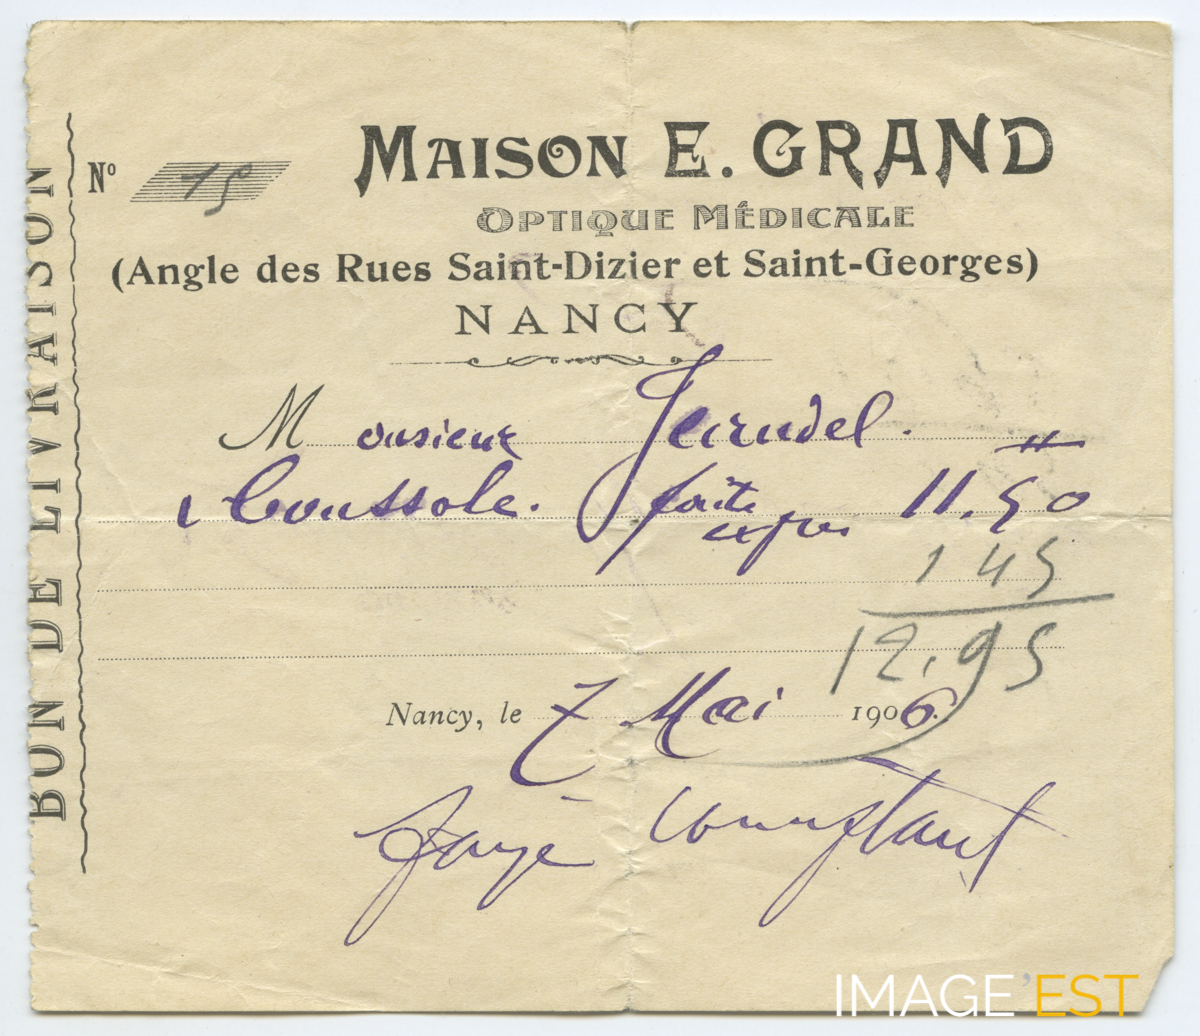 BON DE LIVRAISON
Nº 15
MAISON E. GRAND
OPTIQUE MÉDICALE
(Angle des Rues Saint-Dizier et Saint-Georges)
NANCY
Monsieur
1 Boussole. 11.50
1 45
12.95
Nancy, le 7 Mai 1906.
IMAGE'EST